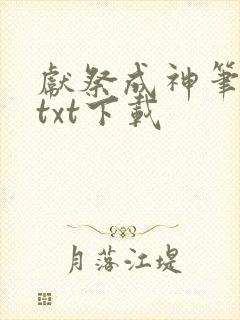 獻祭成神筆
txt下載
月落江堤